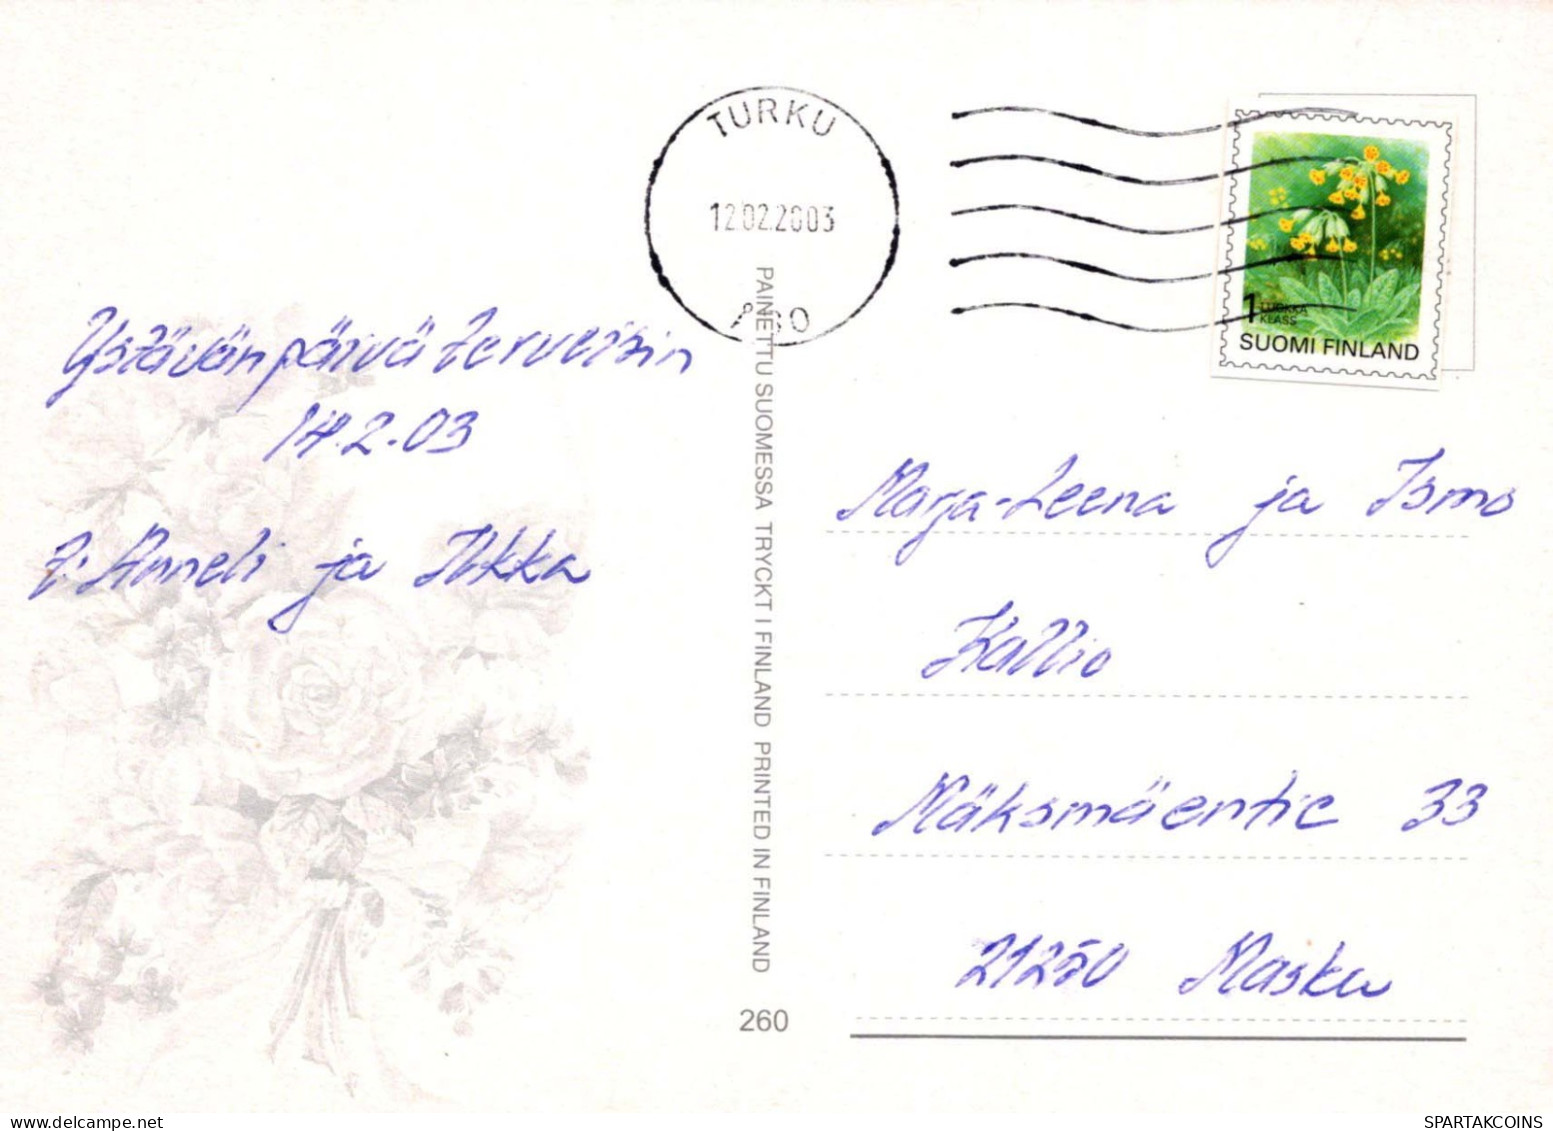 TURKU
12.02.2003
1 LUOKKA
KLASS
SUOMI FINLAND
Ystävänpäivä terveisin
14.2.03
t. Anneli ja Ilkka
PAINETTU SUOMESSA TRYCKT I FINLAND PRINTED IN FINLAND
260
Marja-Leena ja Ismo
Kallio
Mäksmäentie 33
21250 Masku
SPARTAKCOINS